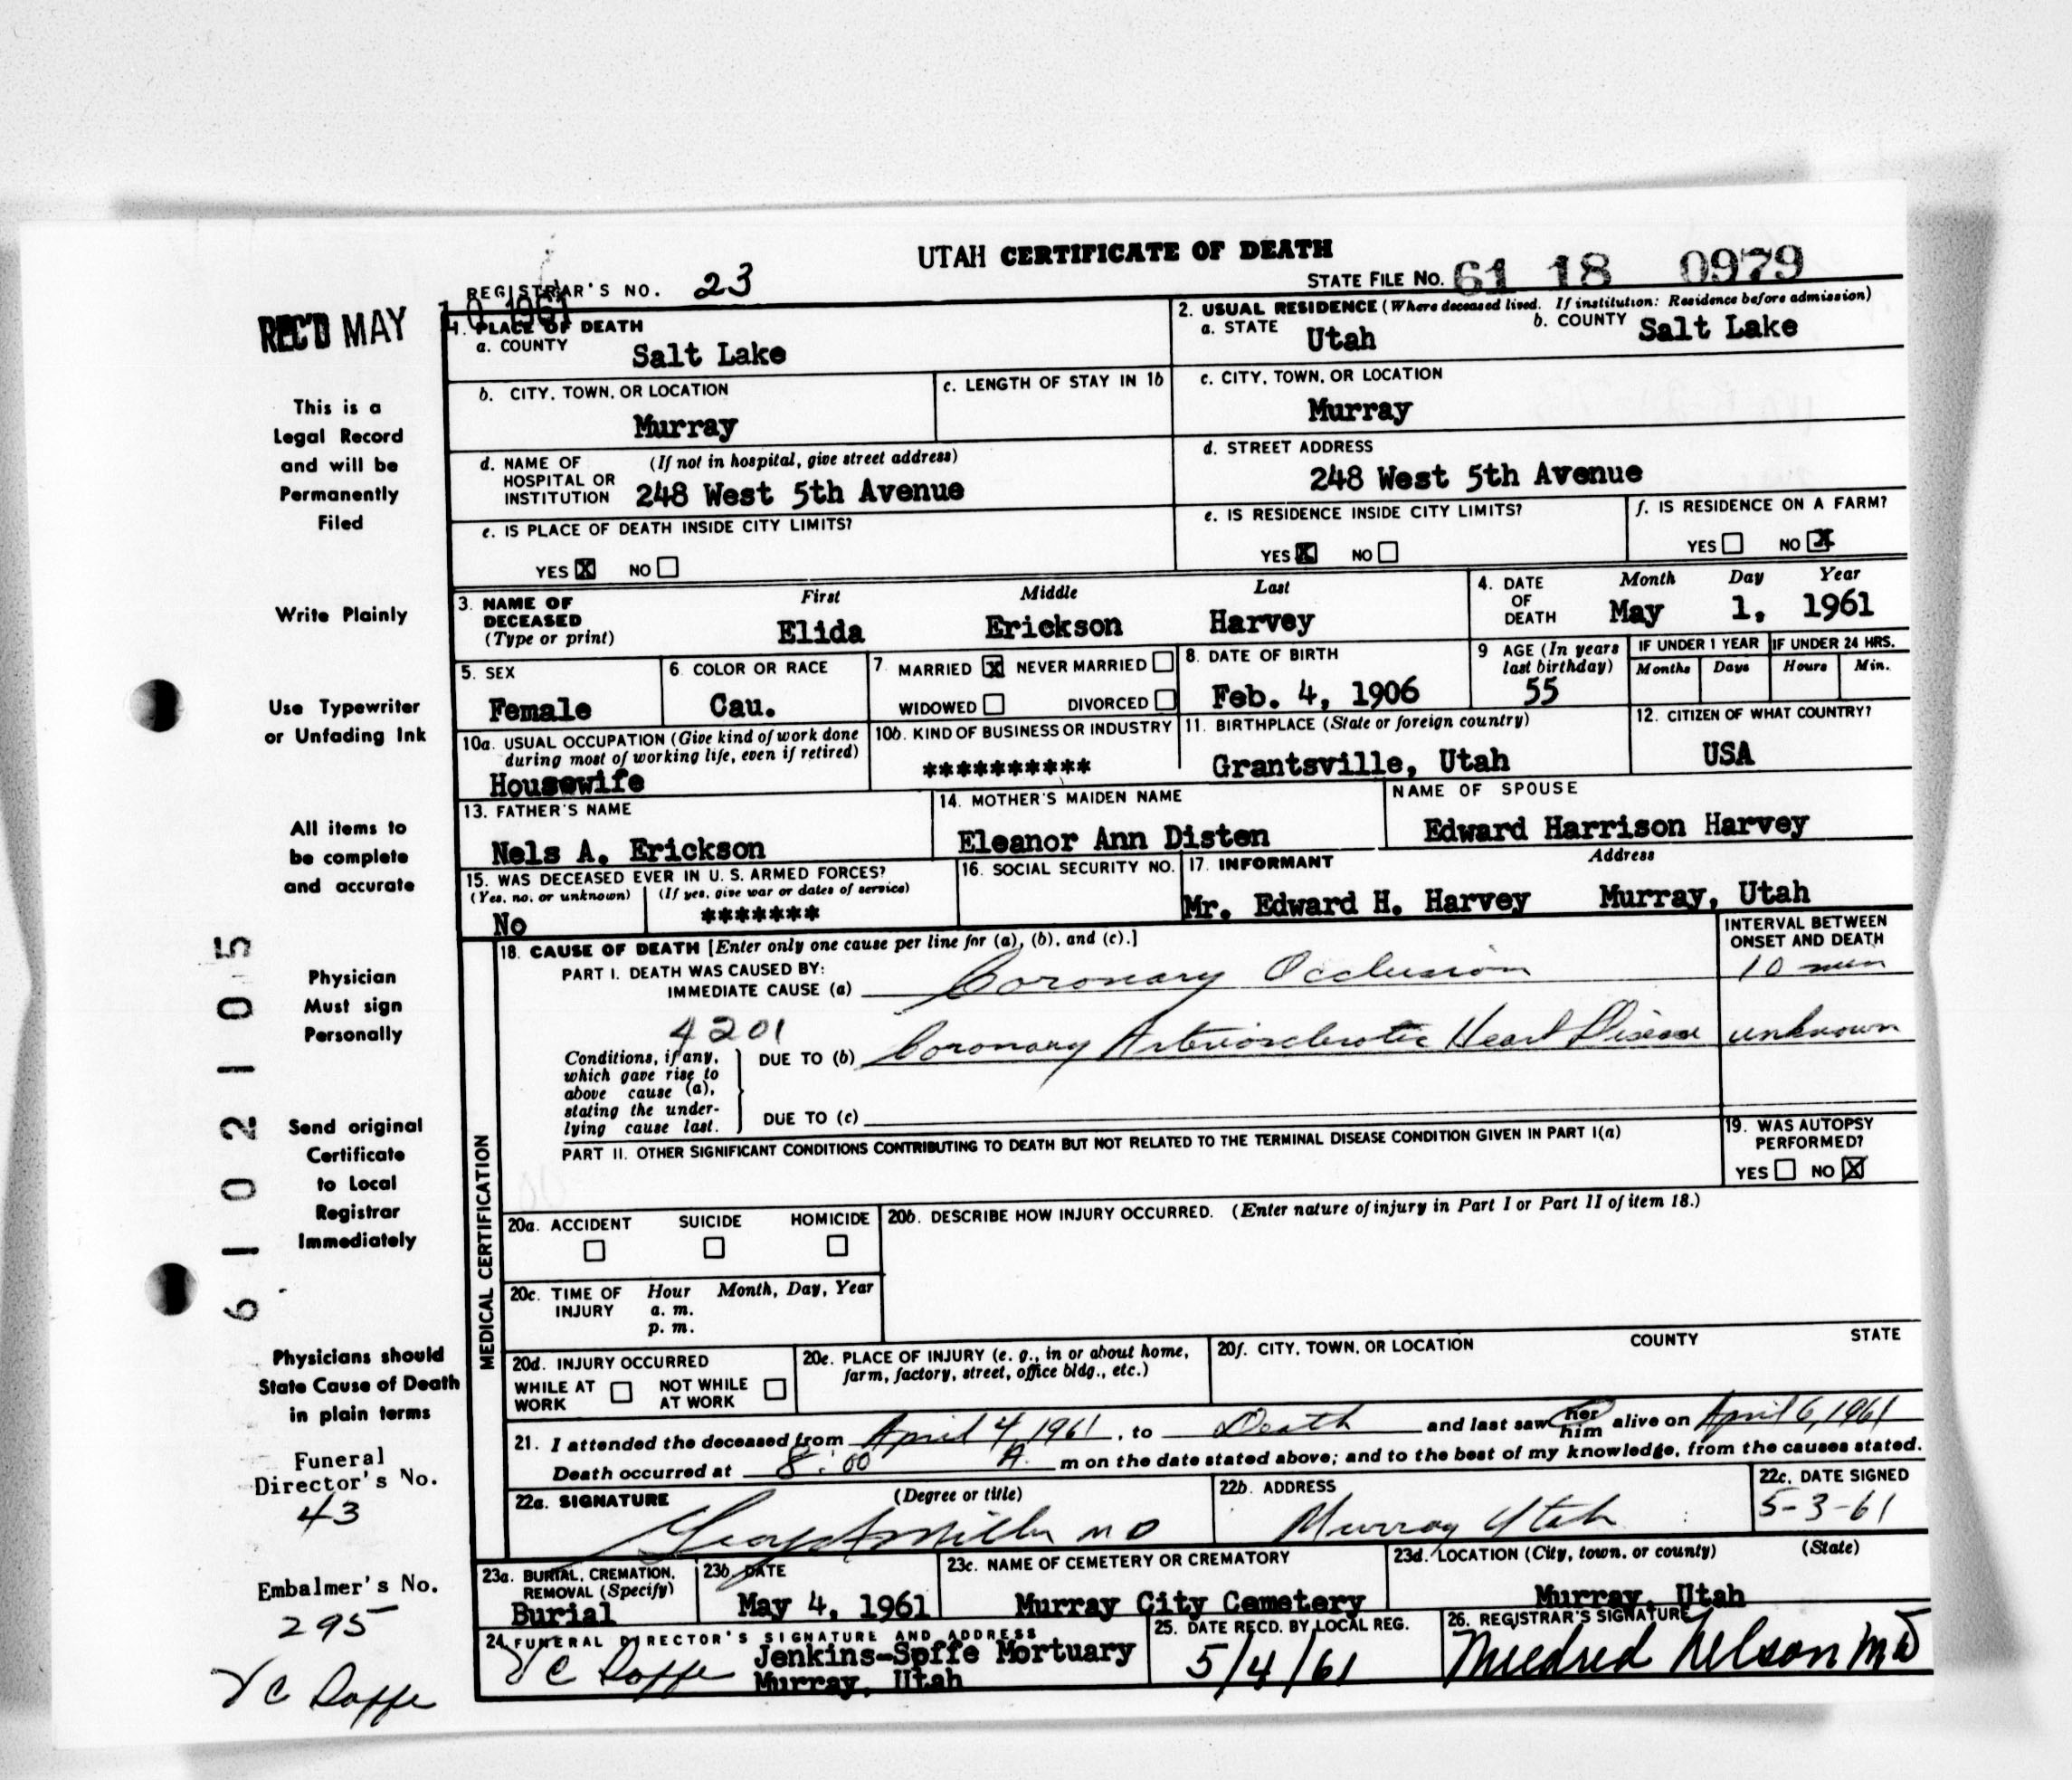 UTAH CERTIFICATE OF DEATH
REGISTRAR'S NO. 23
STATE FILE NO. 61 18 0979
REC'D MAY 10 1961
1. PLACE OF DEATH
a. COUNTY
Salt Lake
2. USUAL RESIDENCE (Where deceased lived. If institution: Residence before admission)
a. STATE Utah b. COUNTY Salt Lake
b. CITY, TOWN, OR LOCATION
Murray
c. LENGTH OF STAY IN 1b
c. CITY, TOWN, OR LOCATION
Murray
d. NAME OF HOSPITAL OR INSTITUTION (If not in hospital, give street address)
248 West 5th Avenue
d. STREET ADDRESS
248 West 5th Avenue
e. IS PLACE OF DEATH INSIDE CITY LIMITS?
YES X NO
e. IS RESIDENCE INSIDE CITY LIMITS?
YES X NO
f. IS RESIDENCE ON A FARM?
YES NO X
3. NAME OF DECEASED (Type or print)
First Middle Last
Elida Erickson Harvey
4. DATE OF DEATH
Month Day Year
May 1, 1961
5. SEX
Female
6. COLOR OR RACE
Cau.
7. MARRIED X NEVER MARRIED
WIDOWED DIVORCED
8. DATE OF BIRTH
Feb. 4, 1906
9 AGE (In years last birthday)
55
IF UNDER 1 YEAR
Months Days
IF UNDER 24 HRS.
Hours Min.
10a. USUAL OCCUPATION (Give kind of work done during most of working life, even if retired)
Housewife
10b. KIND OF BUSINESS OR INDUSTRY
**********
11. BIRTHPLACE (State or foreign country)
Grantsville, Utah
12. CITIZEN OF WHAT COUNTRY?
USA
13. FATHER'S NAME
Nels A. Erickson
14. MOTHER'S MAIDEN NAME
Eleanor Ann Disten
NAME OF SPOUSE
Edward Harrison Harvey
15. WAS DECEASED EVER IN U. S. ARMED FORCES?
(Yes, no, or unknown) (If yes, give war or dates of service)
No *******
16. SOCIAL SECURITY NO.
17. INFORMANT Address
Mr. Edward H. Harvey Murray, Utah
MEDICAL CERTIFICATION
18. CAUSE OF DEATH [Enter only one cause per line for (a), (b), and (c).]
INTERVAL BETWEEN ONSET AND DEATH
PART I. DEATH WAS CAUSED BY:
IMMEDIATE CAUSE (a) Coronary Occlusion 10 min
4201
Conditions, if any, which gave rise to above cause (a), stating the underlying cause last.
DUE TO (b) Coronary Arteriosclerotic Heart Disease unknown
DUE TO (c)
PART II. OTHER SIGNIFICANT CONDITIONS CONTRIBUTING TO DEATH BUT NOT RELATED TO THE TERMINAL DISEASE CONDITION GIVEN IN PART I(a)
19. WAS AUTOPSY PERFORMED?
YES NO X
20a. ACCIDENT SUICIDE HOMICIDE
20b. DESCRIBE HOW INJURY OCCURRED. (Enter nature of injury in Part I or Part II of item 18.)
20c. TIME OF INJURY Hour Month, Day, Year
a. m.
p. m.
20d. INJURY OCCURRED
WHILE AT WORK NOT WHILE AT WORK
20e. PLACE OF INJURY (e. g., in or about home, farm, factory, street, office bldg., etc.)
20f. CITY, TOWN, OR LOCATION COUNTY STATE
21. I attended the deceased from April 4, 1961, to Death and last saw her him alive on April 6, 1961
Death occurred at 8:00 A. m on the date stated above; and to the best of my knowledge, from the causes stated.
22a. SIGNATURE (Degree or title)
MD
22b. ADDRESS
Murray Utah
22c. DATE SIGNED
5-3-61
23a. BURIAL, CREMATION, REMOVAL (Specify)
Burial
23b. DATE
May 4, 1961
23c. NAME OF CEMETERY OR CREMATORY
Murray City Cemetery
23d. LOCATION (City, town, or county) (State)
Murray, Utah
24. FUNERAL DIRECTOR'S SIGNATURE AND ADDRESS
Jenkins-Soffe Mortuary
Murray, Utah
25. DATE RECD. BY LOCAL REG.
5/4/61
26. REGISTRAR'S SIGNATURE
Mildred Nelson MD
This is a
Legal Record
and will be
Permanently
Filed
Write Plainly
Use Typewriter
or Unfading Ink
All items to
be complete
and accurate
Physician
Must sign
Personally
Send original
Certificate
to Local
Registrar
Immediately
Physicians should
State Cause of Death
in plain terms
Funeral
Director's No.
43
Embalmer's No.
295
V C Soffe
61021105